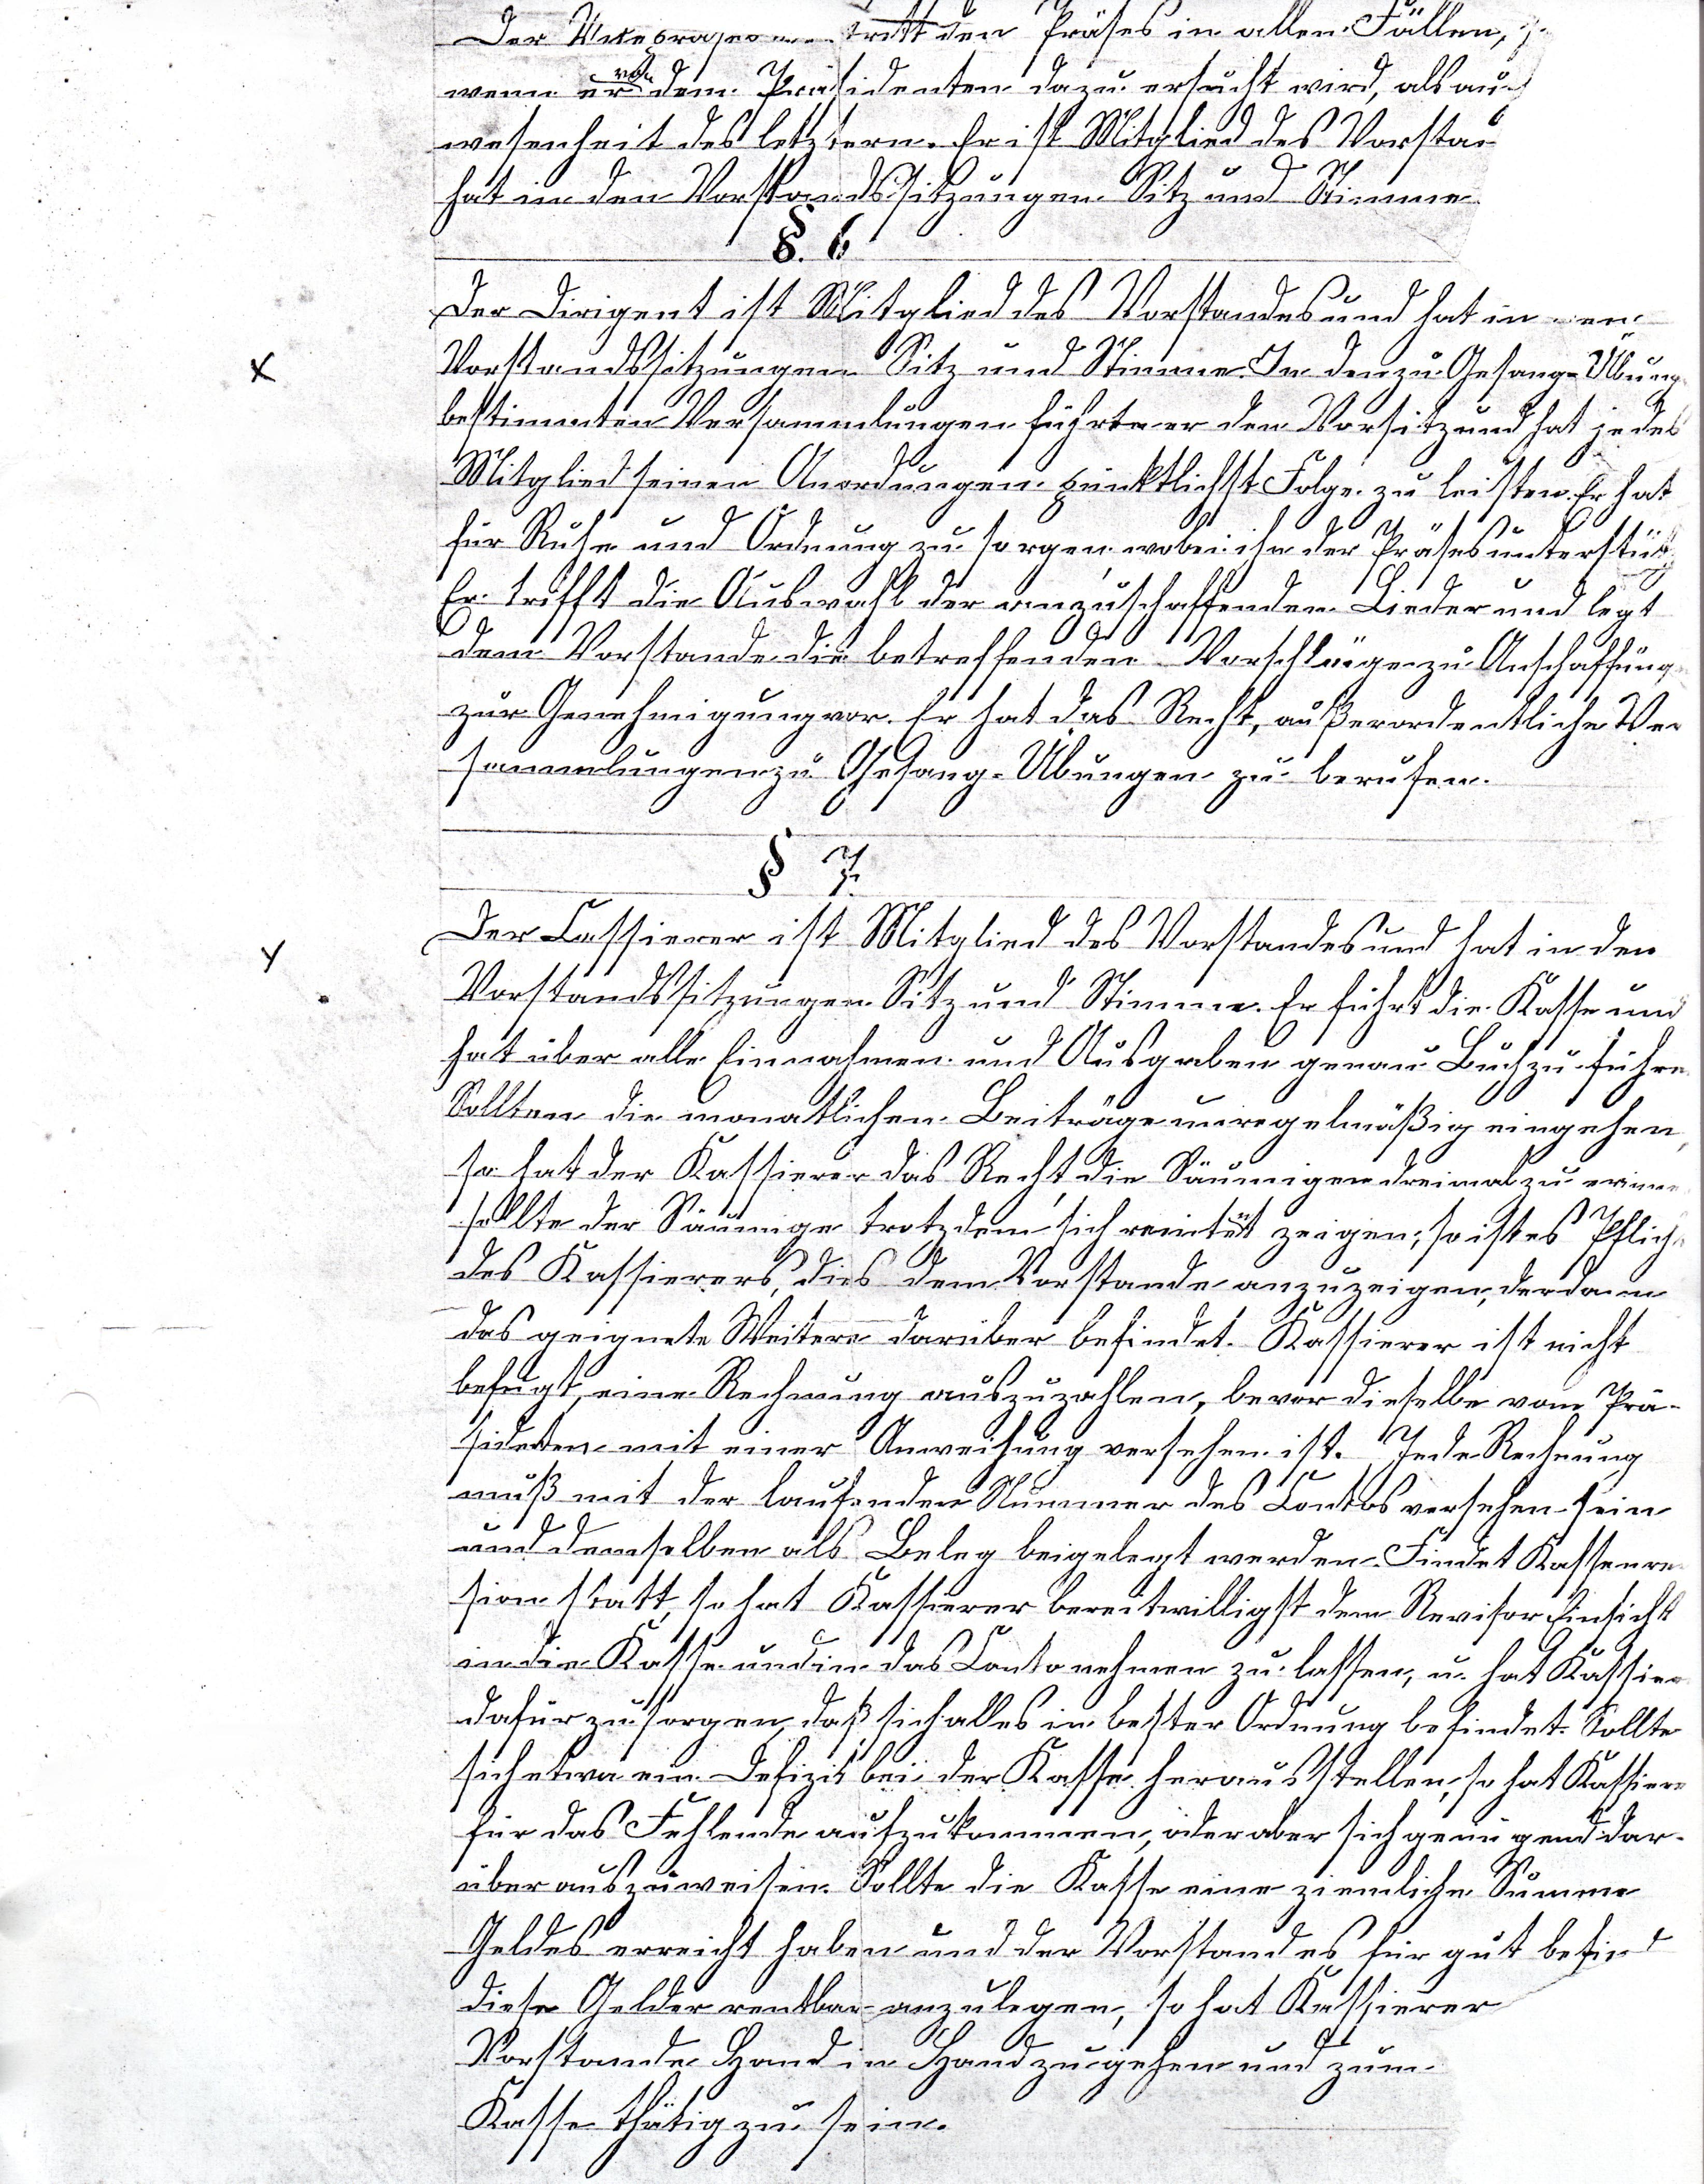 Der tritt den Präses in allen Fällen,
wenn er von dem Präsidenten dazu ersucht wird, als auch
wesenheit des letztern. Er ist Mitglied des Vorsta
hat in den Vorstandssitzungen Sitz und Stimme
§. 6
Der Dirigent ist Mitglied des Vorstandes und hat in en
x Vorstandssitzungen Sitz und Stimme. In den zu Gesang-Übung
bestimmten Versammlungen führt er den Vorsitz und hat jedes
Mitglied seinen Anordungen pünktlichst Folge zu leisten. Er hat
für Ruhe und Ordnung zu sorgen, wobei ihn der Präses unterstütz
Er trifft die Auswahl der anzuschaffenden Lieder und legt
dem Vorstande die betreffenden Vorschläge zu Anschaffung
zur Genehmigung vor. Er hat das Recht, außerordentliche Ver
sammlungen zu Gesang-Übungen zu berufen.
§ 7.
Der Cassierer ist Mitglied des Vorstandes und hat in den
y Vorstandssitzungen Sitz und Stimme. Er führt die Kasse und
hat über alle Einnahmen und Ausgaben genau Buch zu führe
Sollten die monatlichen Beiträge unregelmäßig eingehen,
so hat der Kassierer das Recht, die Säumigen dreimal zu erinne
sollte der Säumige trotzdem sich renitent zeigen, so ist es Pflich
des Kassierers, dies dem Vorstande anzuzeigen, der dann
das geignete Weitere darüber befindet. Kassierer ist nicht
befugt, eine Rechnung auszuzahlen, bevor dieselbe vom Prä-
sidenten mit einer Anweisung versehen ist. Jede Rechnung
muß mit der laufenden Nummer des Contos versehen sein
und demselben als Beleg beigelegt werden. Findet Kassenre
sion statt, so hat Kassierer bereitwilligst dem Revisor Einsicht
in die Kasse und in das Conto nehmen zu lassen, u. hat Kassier
dafür zu sorgen, daß sich alles in bester Ordnung befindet. Sollte
sich etwa ein Defizit bei der Kasse herausstellen, so hat Kassiere
für das Fehlende aufzukommen, oder aber sich genügend dar-
über auszuweisen. Sollte die Kasse eine ziemliche Summe
Geldes erreicht haben und der Vorstand es für gut befind
diese Gelder rentbar anzulegen, so hat Kassierer
Vorstande Hand in Hand zu gehen und zum
Kasse thätig zu sein.